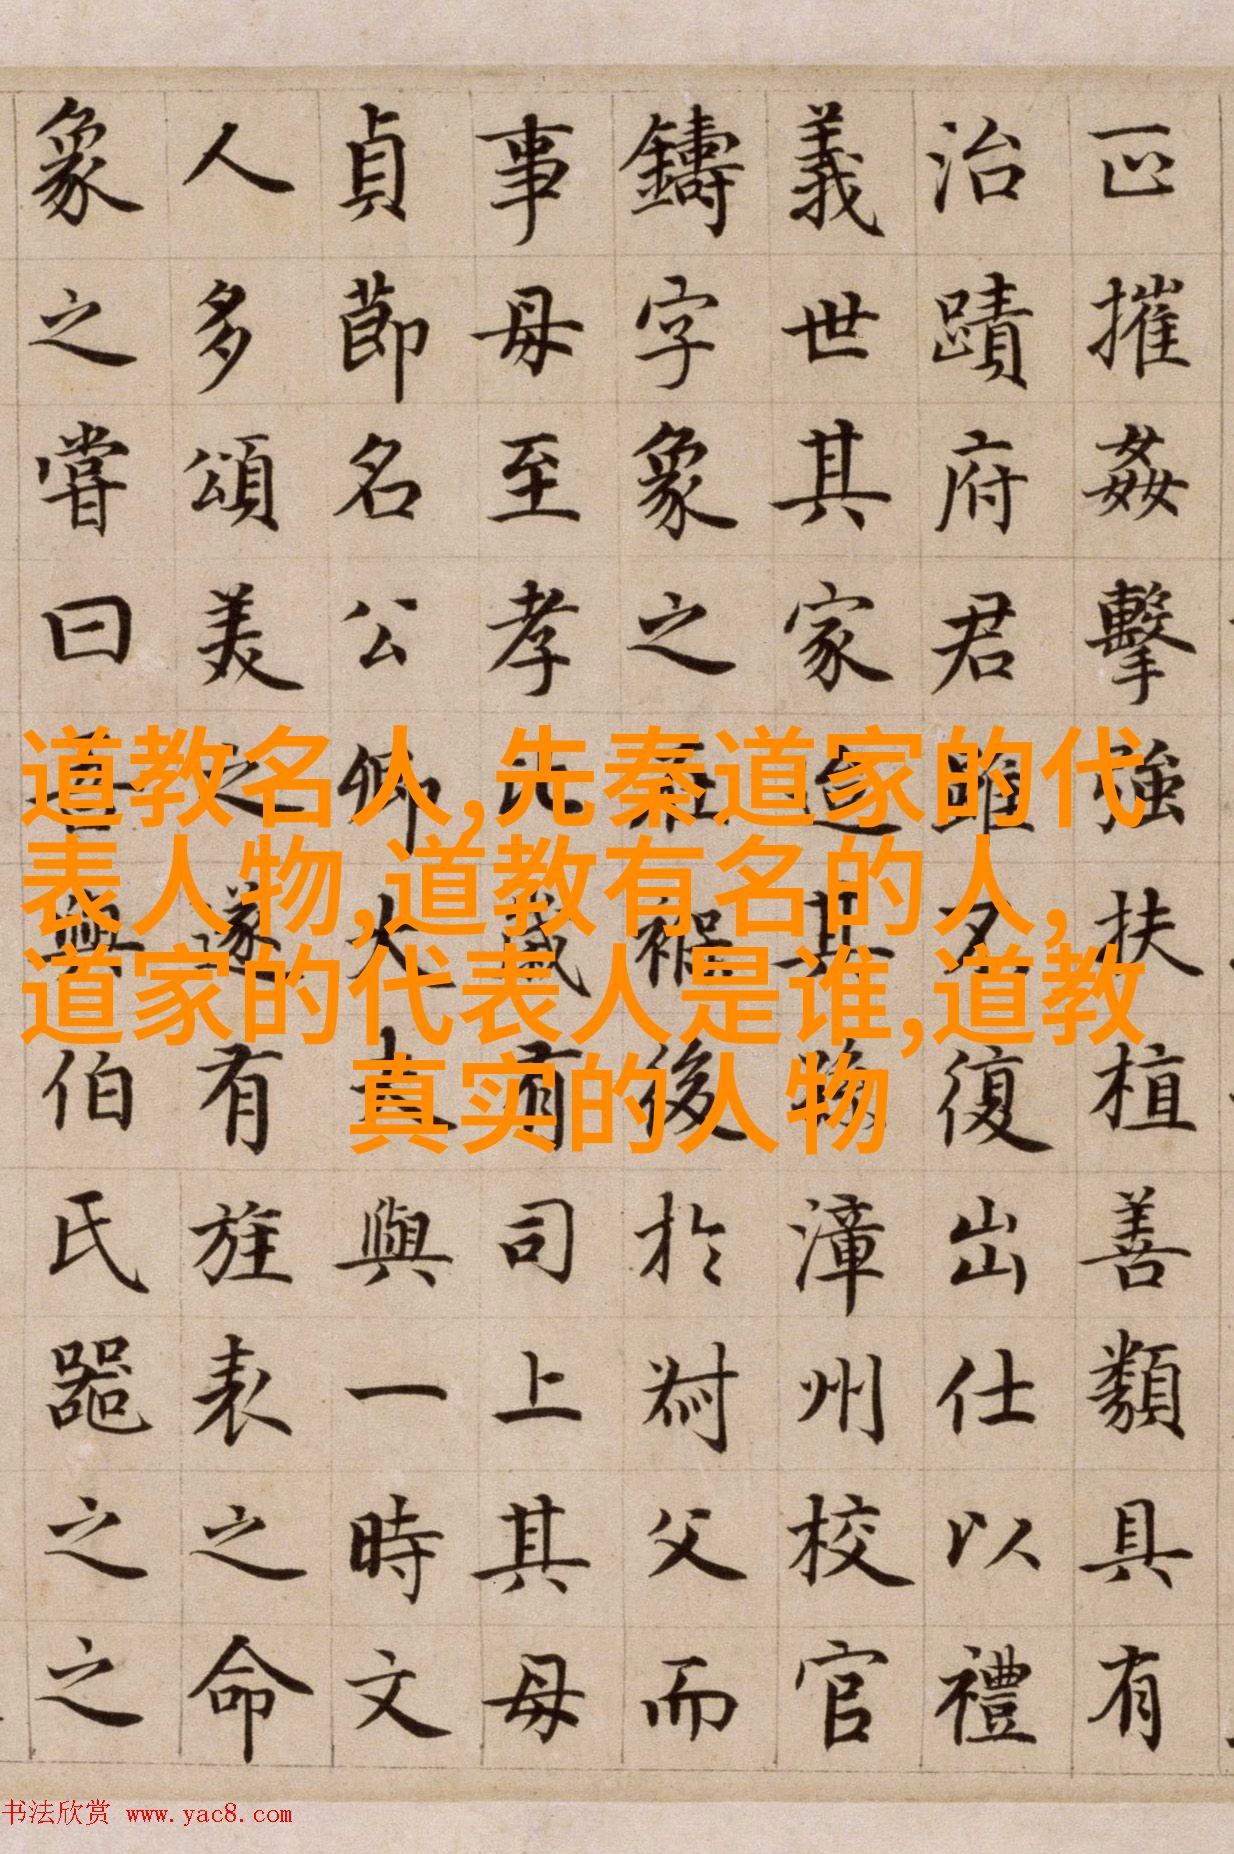 摧姦擊強扶植善類具有
治蹟府君雖復出仕以禮
義世其家其漳州校官
鑄字象之在褓後於父而
事母至孝歲有司上其母
貞節名公卿大夫與一時文
人多頌美之遂有旌表之命
象之嘗曰吾與伯氏器之之
道教名人,先秦道家的代
表人物,道教有名的人,
道家的代表人是谁,道教
真实的人物
书法欣赏 www.yac8.com